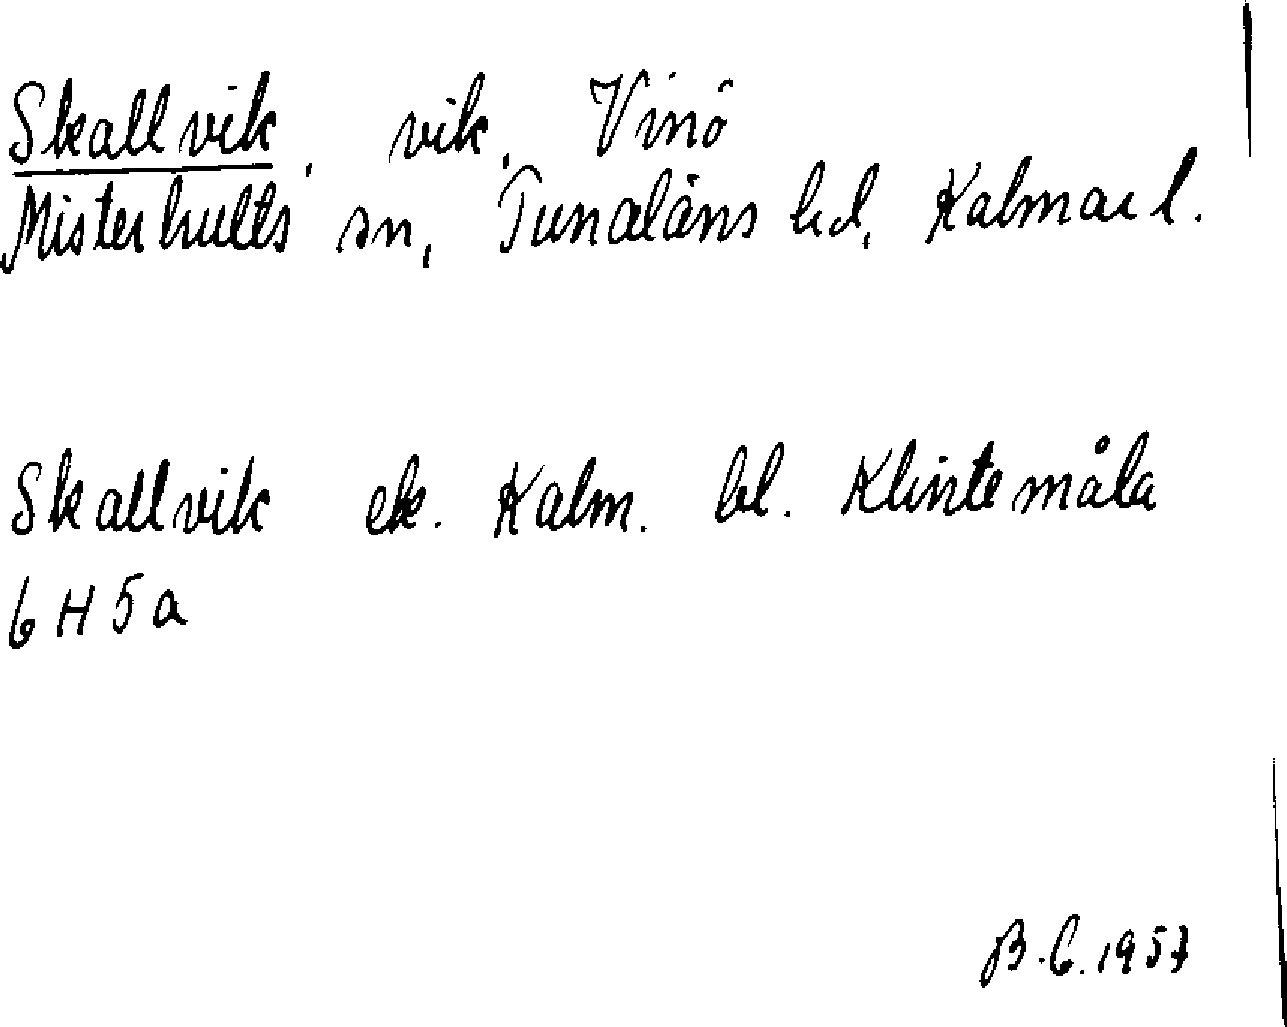 Skallvik, vik, Vinö
Misterhults sn, Tunaläns hd, Kalmar l.
Skallvik ek. Kalm. bl. Klintemåla
6 H 5 a
B.G. 1957